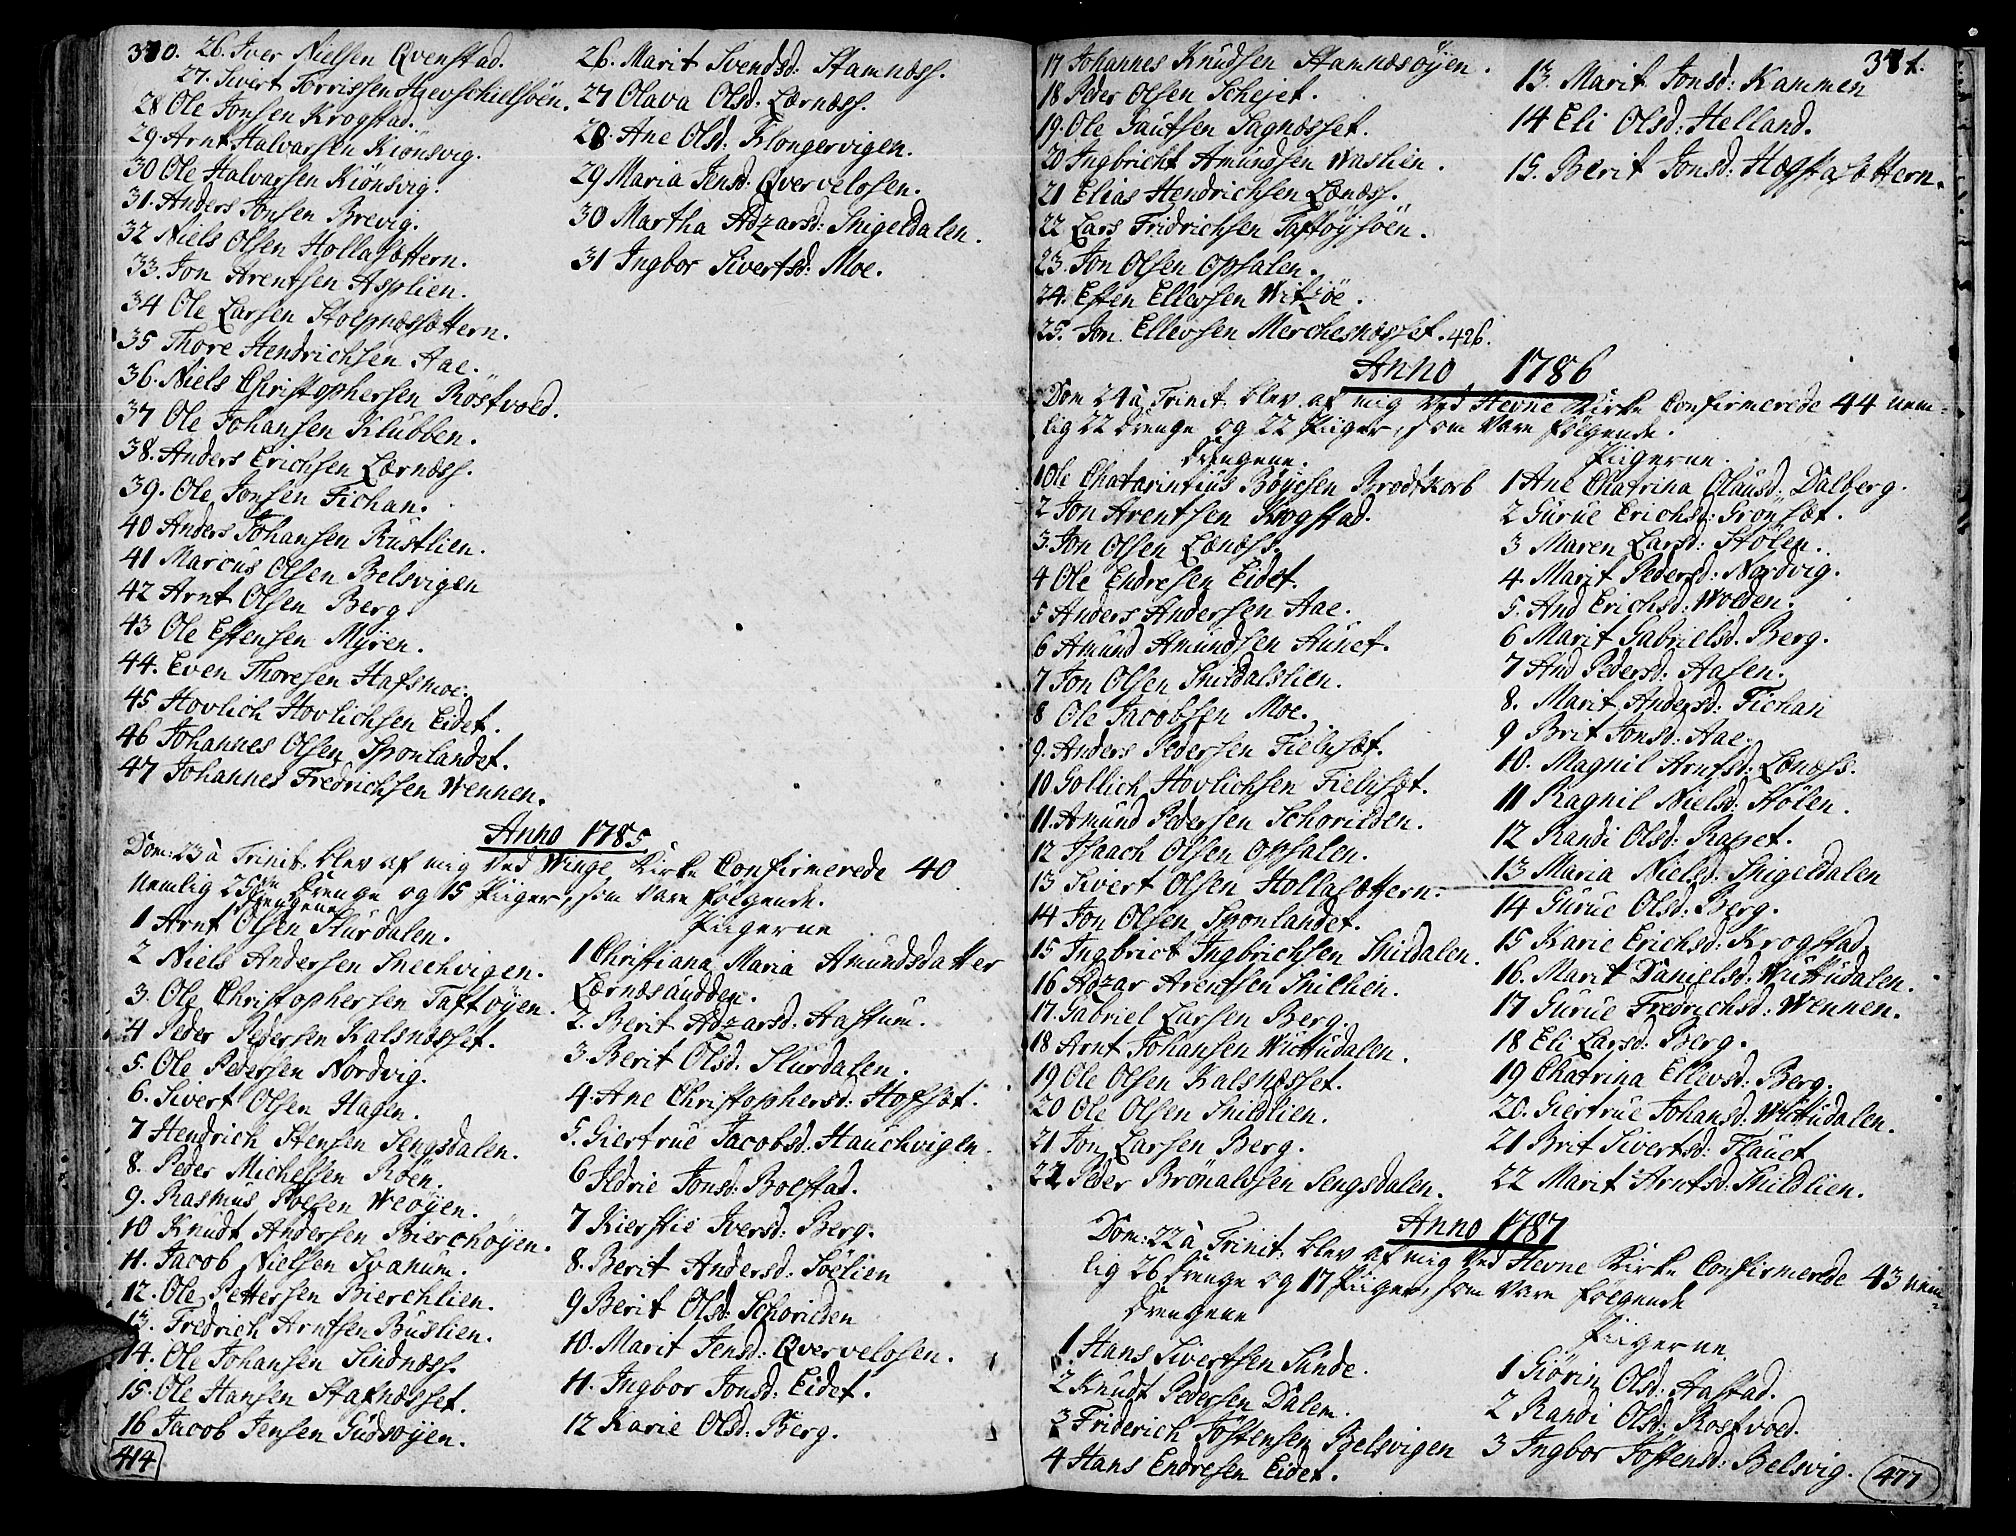 370.
26. Iver Nielsen Qvenstad.
27. Sivert Torrissen Hævschielsöen.
28 Ole Jonsen Krogstad.
29. Arnt Halvarsen Kiönsvig.
30 Ole Halvarsen Kiönsvig.
31. Anders Jonsen Brevig.
32 Niels Olsen Hollasættern.
33. Jon Arentsen Asplien.
34 Ole Larsen Stolpnæssættern.
35 Thore Hendrichsen Aae.
36. Niels Christophersen Röstvold.
37 Ole Johansen Klubben.
38. Anders Erichsen Lærnæss.
39. Ole Jonsen Fichan.
40 Anders Johansen Rustlien.
41 Marcus Olsen Belsvigen
42 Arnt Olsen Berg
43 Ole Estensen Myren.
44. Even Thoresen Hafsmoe.
45 Hovlich Hovlichsen Eidet.
46 Johannes Olsen Sponlandet.
47 Johannes Fredrichsen Wennen.
26. Marit Svendsd: Stamnæss.
27 Olava Olsd: Lærnæss.
28. Ane Olsd: Klongervigen.
29 Maria Jensd: Qvervelosen.
30 Martha Adzarsd: Snigeldalen.
31 Ingbor Sivertsd: Moe.
Anno 1785
Dom: 23 à Trinit: blev af mig ved Winge Kirke Confirmerede 40.
Nemlig 25 Drenge og 15 Piiger, som vare følgende.
Drengene
1 Arnt Olsen Slurdalen.
2 Niels Andersen Snechvigen.
3. Ole Christophersen Taftøyen.
4 Peder Pedersen Kalsnæsset.
5. Ole Pedersen Nordvig.
6. Sivert Olsen Hagen.
7 Hendrich Stensen Sengsdalen.
8. Peder Michelsen Roen.
9. Rasmus Poelsen Weøyen.
10 Knudt Andersen Bierchöyen.
11. Jacob Nielsen Svanum.
12. Ole Pettersen Bierchlien.
13. Fredrich Arntsen Buslien.
14. Ole Johansen Sindnæss.
15. Ole Hansen Stafnæsset.
16 Jacob Jensen Gudsøyen.
Piigerne
1 Christiana Maria Amundsdatter
Lærnæsaudden.
2. Berit Adzarsd: Hastum.
3. Berit Olsd: Slurdalen.
4. Ane Christophersd: Hofsæt.
5. Giertrue Jacobsd: Hauchvigen.
6 Ildrie Jonsd: Bolstad.
7 Kierstie Iversd: Berg.
8. Berit Andersd: Söelien
9 Berit Olsd: Schorilden
10. Marit Jensd: Qvervelosen.
11. Ingbor Jonsd: Eidet.
12 Karie Olsd: Berg.
414
371.
17 Johannes Knudsen Stamnæsøyen.
18 Peder Olsen Schejet.
19. Ole Gautsen Sagnæsset.
20 Ingbricht Amundsen Waslien.
21 Elias Hendrichsen Lænæss.
22 Lars Fridrichsen Taftøysöen.
23. Jon Olsen Opsalen.
24. Esten Ellevsen Witzöe.
25. Jon Ellevsen Merchesnæsset. 426.
13. Marit Jonsd: Kammen
14 Eli Olsd: Helland.
15. Berit Jonsd: Hæstasættern.
Anno 1786
Dom 24 à Trinit: blev af mig ved Hevne Kirke Confirmerede 44 nem-
lig 22 Drenge og 22 Piiger, som vare følgende.
Drengene.
1 Ole Chatarintius Böyesen Brodtkorb
2 Jon Arentsen Krogstad.
3. Jon Olsen Lænæss.
4 Ole Endresen Eidet.
5 Anders Andersen Aae.
6 Amund Amundsen Hunet.
7 Jon Olsen Snildalslien.
8 Ole Jacobsen Moe.
9. Anders Pedersen Fielnsæt.
10 Gollich Hovlichsen Fielnsæt.
11. Amund Pedersen Schorilden.
12 Isaach Olsen Opsalen.
13 Sivert Olsen Hollasættern.
14 Jon Olsen Sponlandet.
15 Ingbrict Ingbrichsen Snildalen.
16 Adzar Arentsen Snillien.
17. Gabriel Larsen Berg.
18 Arnt Johansen Wuttudalen.
19 Ole Olsen Kalsnæsset.
20 Ole Olsen Snildlien.
21 Jon Larsen Berg.
22 Peder Brönaldsen Sengsdalen.
Piigerne.
1 Ane Chatrina Clausd: Dalberg.
2 Gurue Erichsd: Gronsæt.
3 Maren Larsd: Stølen.
4. Marit Pedersd: Nordvig.
5. And Erichsd: Wolden.
6 Marit Gabrielsd: Berg.
7 And Pedersd: Aasen.
8. Marit Andersd: Fichan
9 Brit Jonsd: Aae.
10. Magnil Arntsd: Lænæss.
11 Ragnil Nielsd: Stølen.
12 Randi Olsd: Rasset.
13 Maria Nielsd: Snigeldalen
14 Gurue Olsd: Berg.
15 Karie Erichsd: Krogstad.
16. Marit Danielsd: Wuttudalen.
17 Gurue Fredrichsd: Wennen.
18 Eli Larsd: Berg.
19 Chatrina Ellevsd: Berg.
20. Giertrue Johansd: Wuttudalen.
21 Brit Sivertsd: Flauet
22 Marit Arntsd: Snildlien.
Anno 1787
Dom: 22 à Trinit: blev af mig ved Hevne Kirke Confirmerede 43 nem-
lig 26 Drenge og 17 Piiger, som vare følgende
Drengene
1 Hans Sivertsen Sunde.
2 Knudt Pedersen Dalem.
3 Friderich Jöstensen Belsvigen
4 Hans Endresen Eidet.
Piigerne.
1 Giörin Olsd: Aastad.
2 Randi Olsd: Rostvold.
3 Ingbor Jöstensd: Belsvig.
477